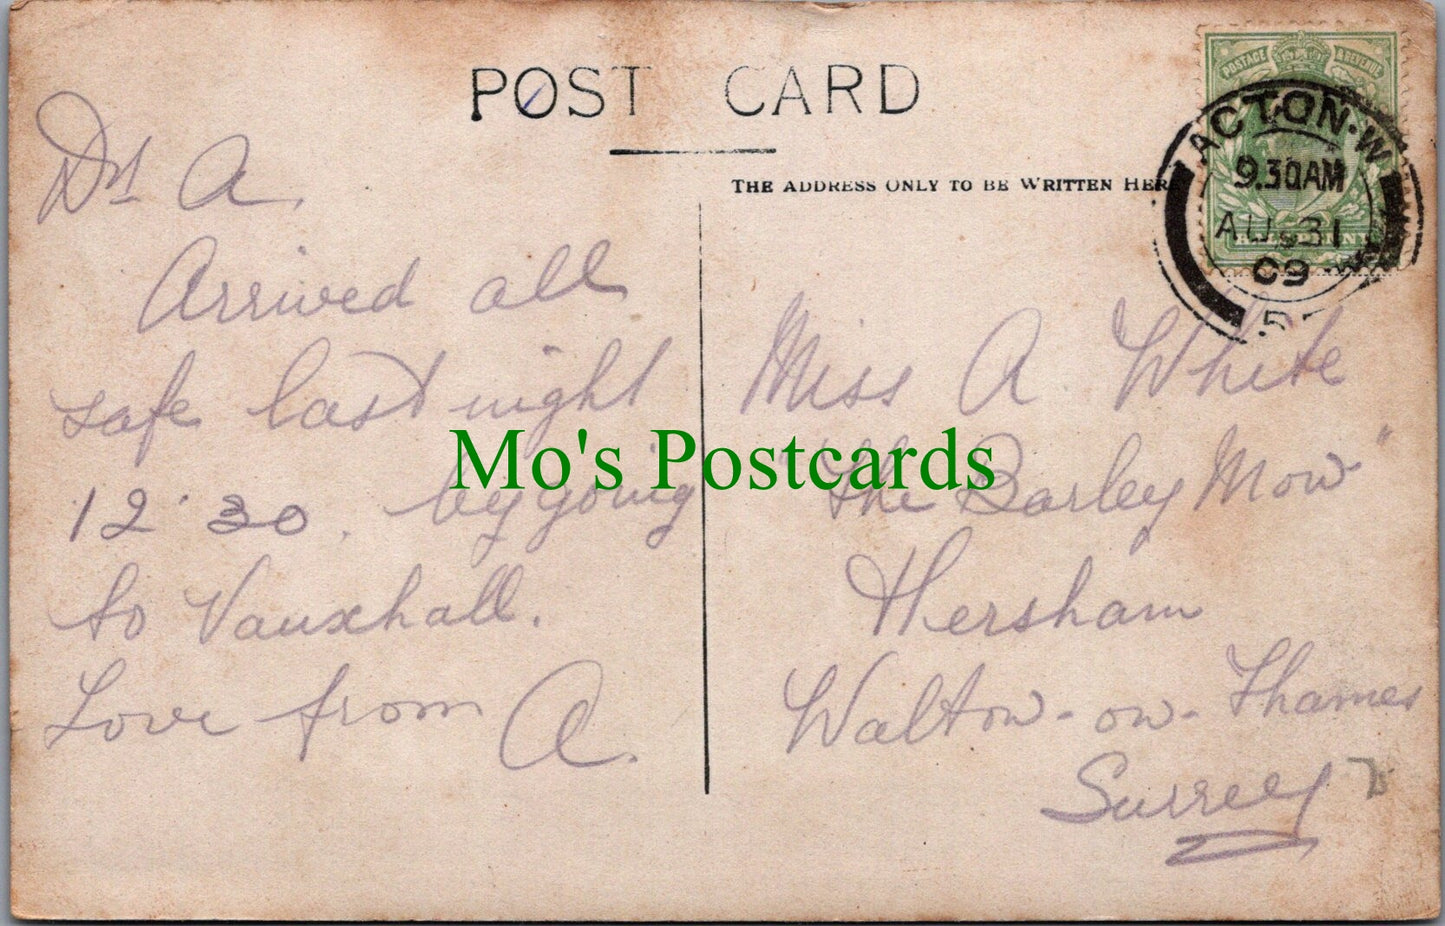 POST CARD
THE ADDRESS ONLY TO BE WRITTEN HERE
POSTAGE & REVENUE
ACTON·W
9.30AM
AU 31
09
Dst A.
Arrived all
safe last night
12·30. by going
to Vauxhall.
Love from A.
Miss A White
"The Barley Mow"
Hersham
Walton-on-Thames
Surrey
Mo's Postcards